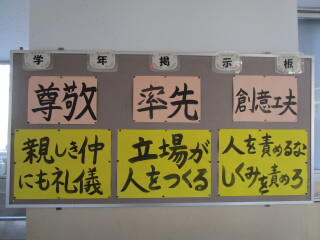 学年掲示板
尊敬
率先
創意工夫
親しき仲
にも礼儀
立場が
人をつくる
人を責めるな
しくみを責めろ